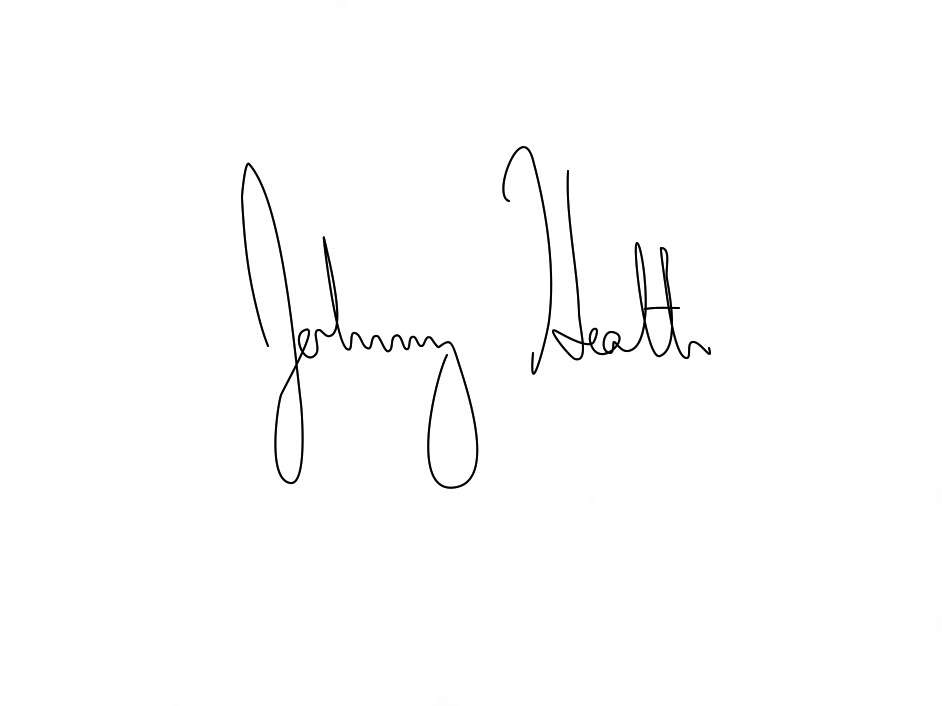 Johnny Heath